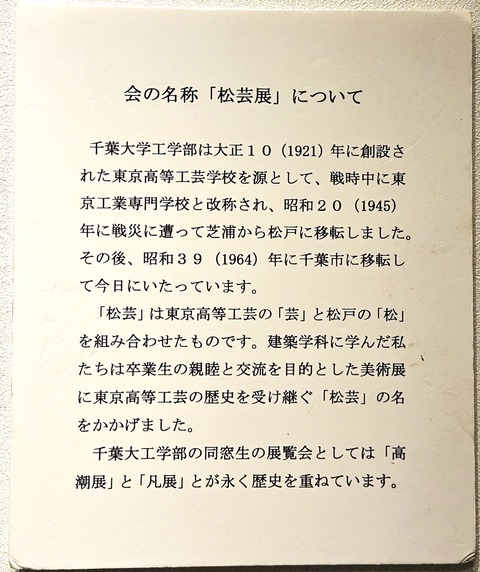 会の名称「松芸展」について
千葉大学工学部は大正１０（1921）年に創設さ
れた東京高等工芸学校を源として、戦時中に東
京工業専門学校と改称され、昭和２０（1945）
年に戦災に遭って芝浦から松戸に移転しました。
その後、昭和３９（1964）年に千葉市に移転し
て今日にいたっています。
「松芸」は東京高等工芸の「芸」と松戸の「松」
を組み合わせたものです。建築学科に学んだ私
たちは卒業生の親睦と交流を目的とした美術展
に東京高等工芸の歴史を受け継ぐ「松芸」の名
をかかげました。
千葉大工学部の同窓生の展覧会としては「高
潮展」と「凡展」とが永く歴史を重ねています。